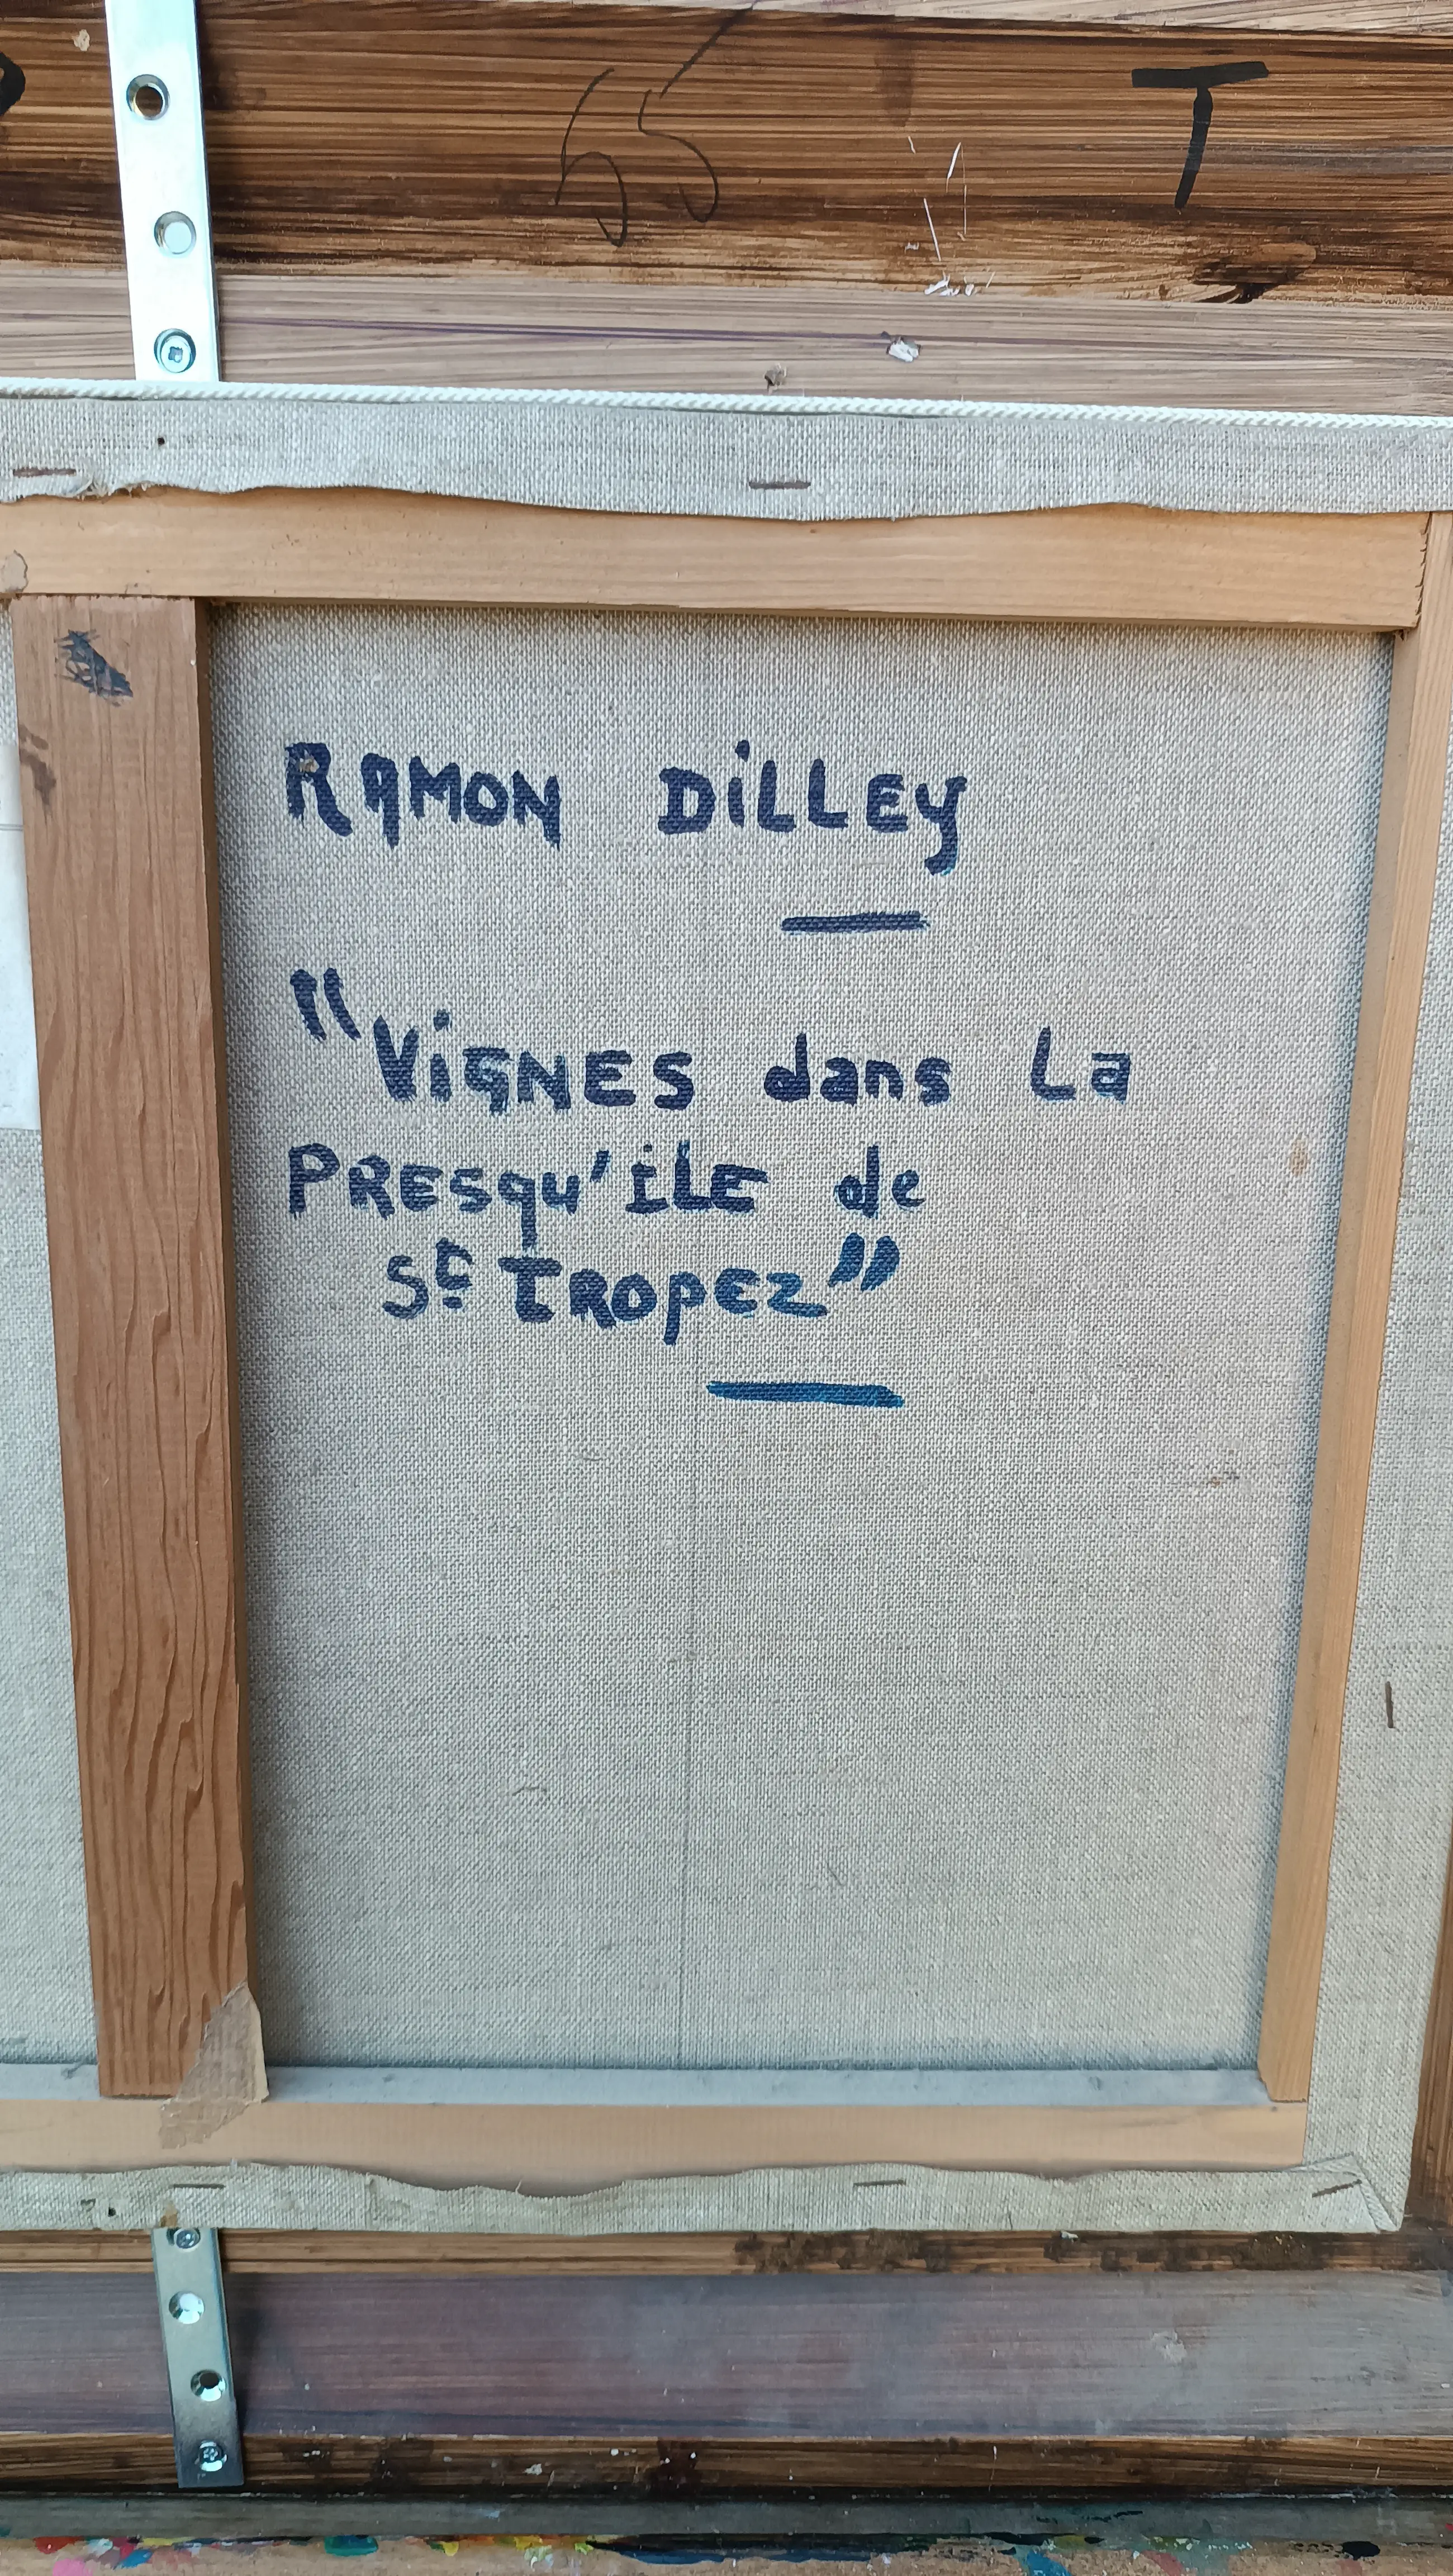 55 T
RAMON DiLLEY
"ViGNES dans La
PRESqu'iLE de
St TROPEZ"